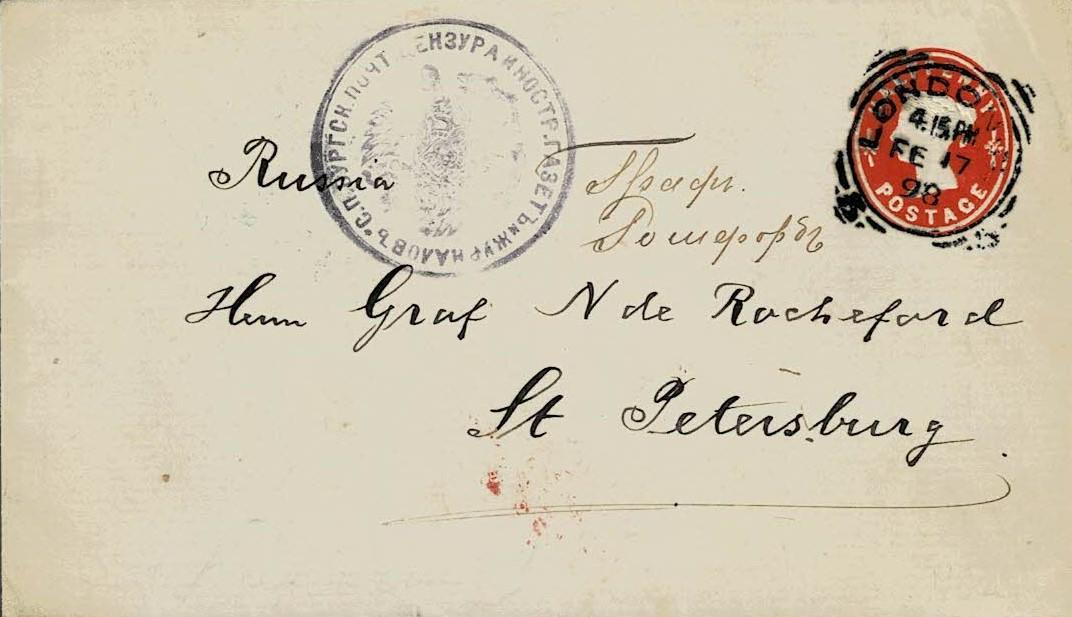 С.П.БУРГСК.ПОЧТ ЦЕНЗУРА ИНОСТР.ГАЗЕТЪ и ЖУРНАЛОВЪ
LONDON
4.15 PM
FE 17
98
POSTAGE
Russia
Граф.
Рошефоръ
Herrn Graf N de Rocheford
St Petersburg